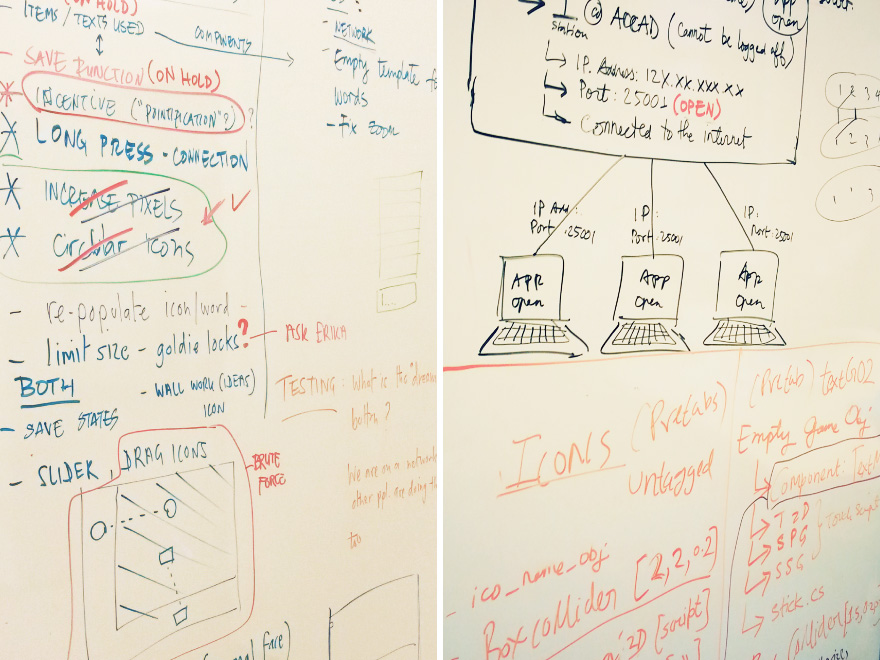 HOLD)
- ITEMS / TEXTS USED
COMPONENTS
- SAVE FUNCTION (ON HOLD)
INCENTIVE ("POINTIFICATION"?) ?
LONG PRESS - CONNECTION
INCREASE PIXELS
Circular icons
- re-populate icon/word -
- limit size - goldie locks? - ASK ERIKA
BOTH
- WALL WORK (IDEAS)
ICON
- SAVE STATES
- SLIDER, DRAG ICONS
BRUTE
FORCE
- NETWORK
- Empty template
words
- Fix zoom
TESTING: What is the dream
button?
We are on a network
other ppl are doing
too
face)
App
open
station
ACCAD (cannot be logged off)
IP. Address: 12X.XX.XXX.XX
Port: 25001 (OPEN)
Connected to the internet
1 2 3 4
1 2 3 4
IP Add:
Port: 25001
IP:
Port: 25001
IP:
Port: 25001
APP
open
APP
open
App
open
ICONS (Prefabs)
untagged
- ico_name_obj
- Box collider [2,2,0.2]
2D [script]
(Prefab) textGO2
Empty Game Obj
Component: Text
T2D
SPG
SSG
Touch Script
stick.cs